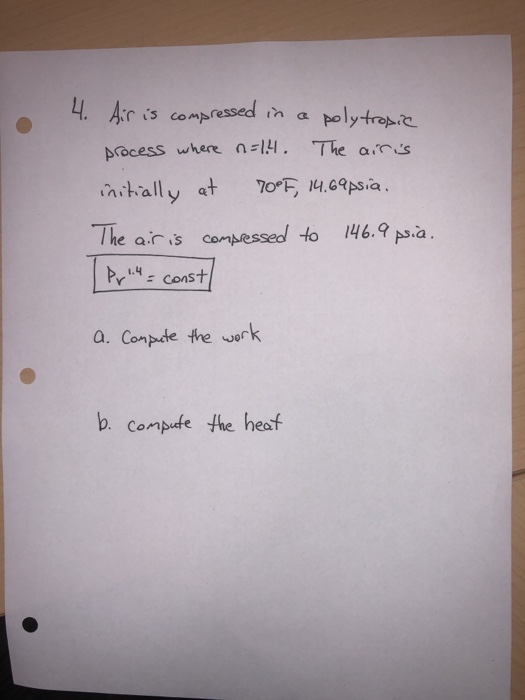 4. Air is compressed in a polytropic
process where n=1.4. The air is
initially at 70°F, 14.69psia.
The air is compressed to 146.9 psia.
Pv^1.4 = const
a. Compute the work
b. compute the heat